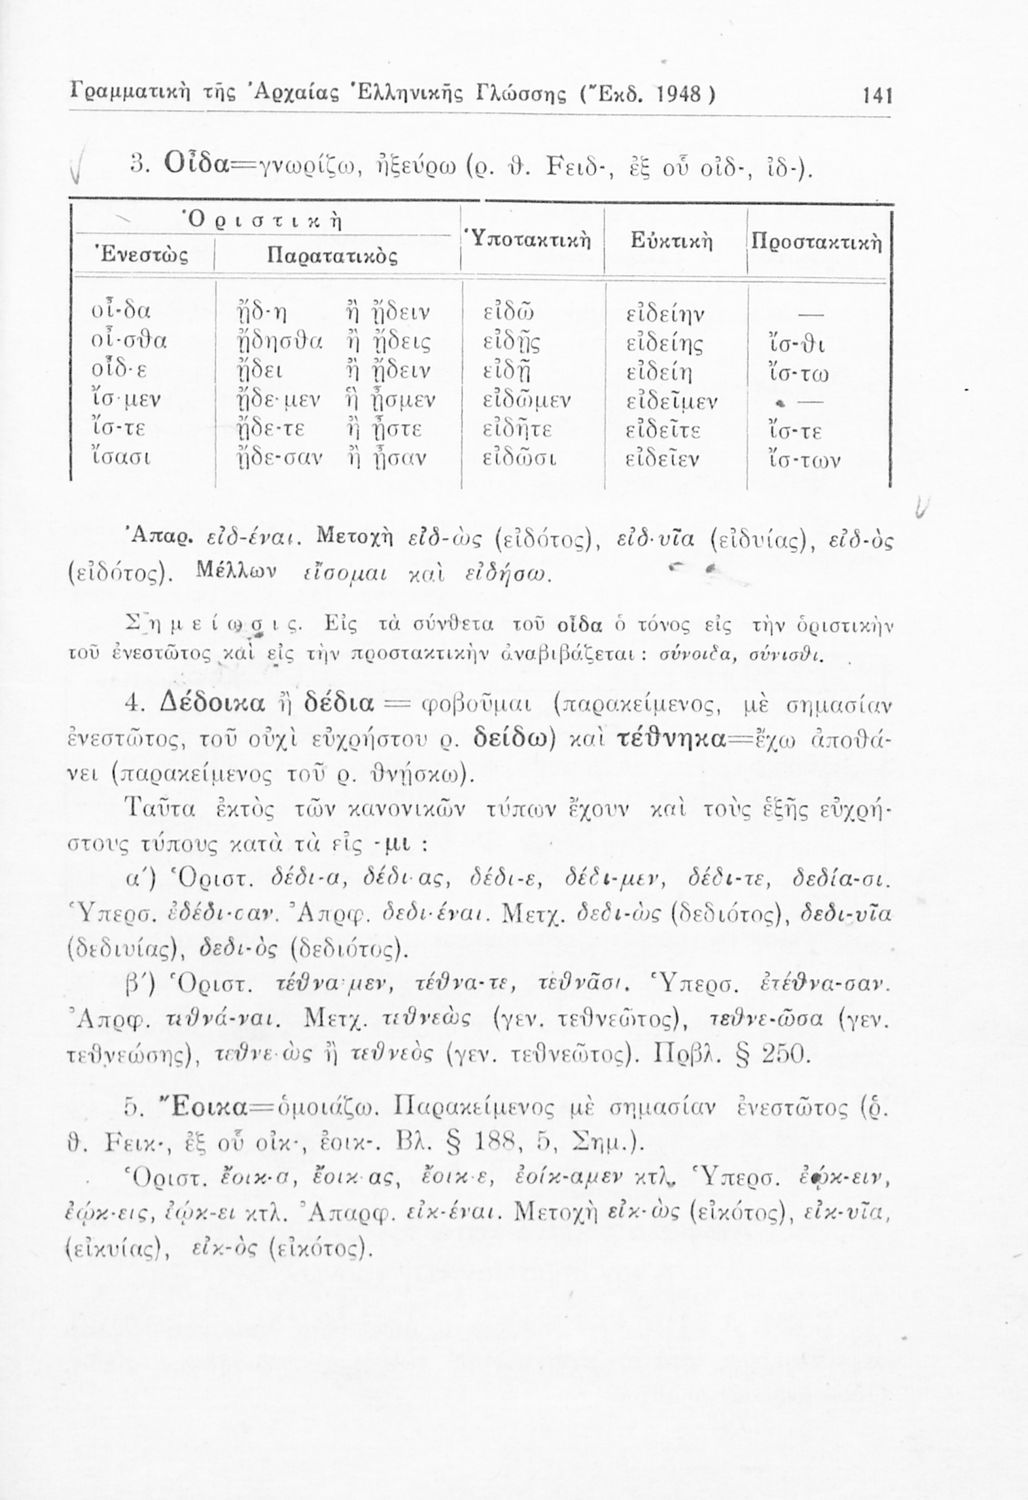 Γραμματικὴ τῆς Ἀρχαίας Ἑλληνικῆς Γλώσσης (Ἔκδ. 1948 ) 141
3. Οἶδα=γνωρίζω, ἠξεύρω (ρ. θ. Fειδ-, ἐξ οὗ οἰδ-, ἰδ-).
Ὁριστικὴ Ὑποτακτικὴ Εὐκτικὴ Προστακτικὴ
Ἐνεστὼς Παρατατικὸς
οἶ-δα ᾔδ-η ἢ ᾔδειν εἰδῶ εἰδείην —
οἶ-σθα ᾔδησθα ἢ ᾔδεις εἰδῇς εἰδείης ἴσ-θι
οἶδ-ε ᾔδει ἢ ᾔδειν εἰδῇ εἰδείη ἴσ-τω
ἴσ-μεν ᾔδε-μεν ἢ ᾖσμεν εἰδῶμεν εἰδεῖμεν —
ἴσ-τε ᾔδε-τε ἢ ᾖστε εἰδῆτε εἰδεῖτε ἴσ-τε
ἴσασι ᾔδε-σαν ἢ ᾖσαν εἰδῶσι εἰδεῖεν ἴσ-των
Ἀπαρ. εἰδ-έναι. Μετοχὴ εἰδ-ὼς (εἰδότος), εἰδ-υῖα (εἰδυίας), εἰδ-ὸς
(εἰδότος). Μέλλων εἴσομαι καὶ εἰδήσω.
Σημείωσις. Εἰς τὰ σύνθετα τοῦ οἶδα ὁ τόνος εἰς τὴν ὁριστικὴν
τοῦ ἐνεστῶτος καὶ εἰς τὴν προστακτικὴν ἀναβιβάζεται : σύνοιδα, σύνισθι.
4. Δέδοικα ἢ δέδια = φοβοῦμαι (παρακείμενος, μὲ σημασίαν
ἐνεστῶτος, τοῦ οὐχὶ εὐχρήστου ρ. δείδω) καὶ τέθνηκα=ἔχω ἀποθά-
νει (παρακείμενος τοῦ ρ. θνῄσκω).
Ταῦτα ἐκτὸς τῶν κανονικῶν τύπων ἔχουν καὶ τοὺς ἑξῆς εὐχρή-
στους τύπους κατὰ τὰ εἰς -μι :
α΄) Ὁριστ. δέδι-α, δέδι-ας, δέδι-ε, δέδι-μεν, δέδι-τε, δεδία-σι.
Ὑπερσ. ἐδέδι-σαν. Ἀπρφ. δεδι-έναι. Μετχ. δεδι-ὼς (δεδιότος), δεδι-υῖα
(δεδιυίας), δεδι-ὸς (δεδιότος).
β΄) Ὁριστ. τέθνα-μεν, τέθνα-τε, τεθνᾶσι. Ὑπερσ. ἐτέθνα-σαν.
Ἀπρφ. τεθνά-ναι. Μετχ. τεθνεὼς (γεν. τεθνεῶτος), τεθνε-ῶσα (γεν.
τεθνεώσης), τεθνε-ὼς ἢ τεθνεὸς (γεν. τεθνεῶτος). Πρβλ. § 250.
5. Ἔοικα=ὁμοιάζω. Παρακείμενος μὲ σημασίαν ἐνεστῶτος (ῥ.
θ. Fεικ-, ἐξ οὗ οἰκ-, ἐοικ-. Βλ. § 188, 5, Σημ.).
Ὁριστ. ἔοικ-α, ἔοικ-ας, ἔοικ-ε, ἐοίκ-αμεν κτλ. Ὑπερσ. ἐῴκ-ειν,
ἐῴκ-εις, ἐῴκ-ει κτλ. Ἀπαρφ. εἰκ-έναι. Μετοχὴ εἰκ-ὼς (εἰκότος), εἰκ-υῖα,
(εἰκυίας), εἰκ-ὸς (εἰκότος).